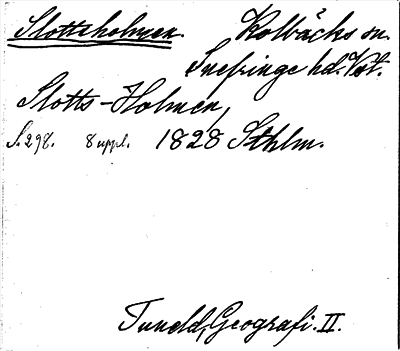 Slottsholmen. Kolbäcks sn.
Snefringe hd. Vst.
Slotts-Holmen,
S. 298. 8 uppl. 1828 Sthlm.
Tuneld, Geografi. II.